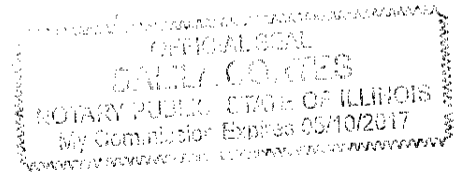 OFFICIAL SEAL
NOTARY PUBLIC STATE OF ILLINOIS
My Commission Expires 05/10/2017